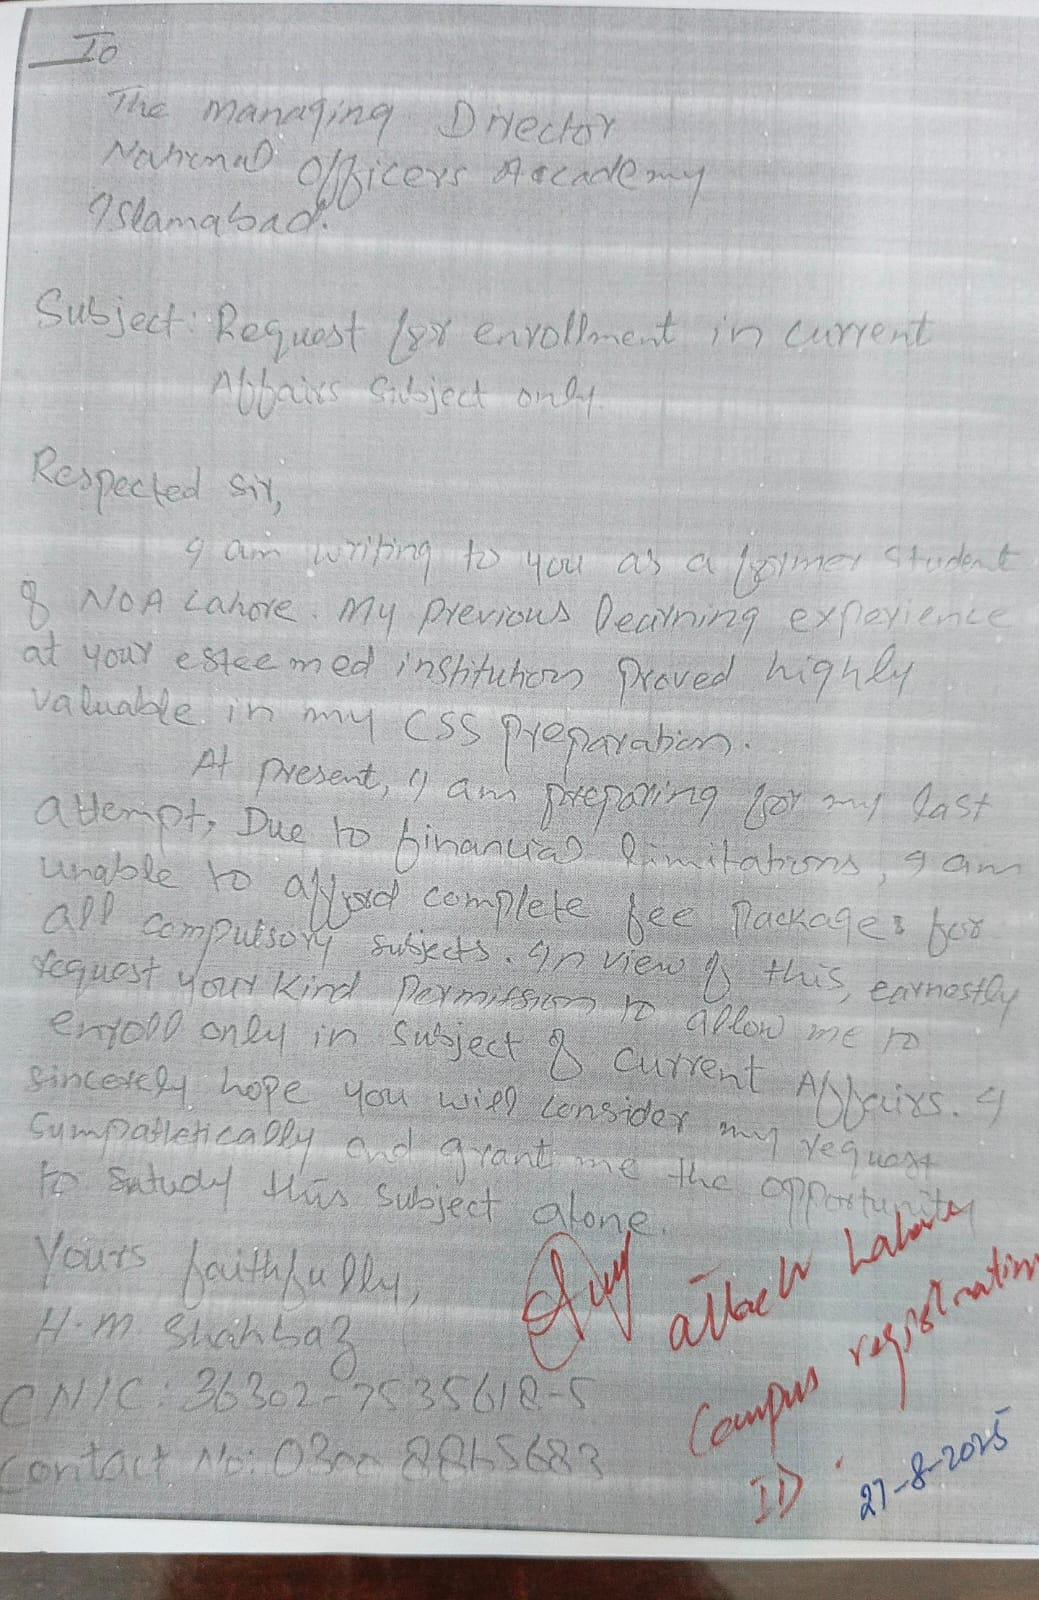 To
The Managing Director
National Officers Accademy
Islamabad.
Subject: Request for enrollment in current
Affairs Subject only.
Respected Sir,
I am writing to you as a former Student
of NOA Lahore. My previous learning experience
at your esteemed institution proved highly
valuable in my CSS preparation.
At present, I am preparing for my last
attempt. Due to financial limitations, I am
unable to afford complete fee Packages for
all compulsory subjects. In view of this, earnestly
request your kind permission to allow me to
enroll only in subject of Current Affairs. I
sincerely hope you will consider my request
Sumpathetically and grant me the opportunity
to Satudy this subject alone.
Yours faithfully,
H.M Shahbaz
CNIC: 36302-7535618-5
Contact No: 0300
attach Lahore
Campus registration
ID
27-8-2025